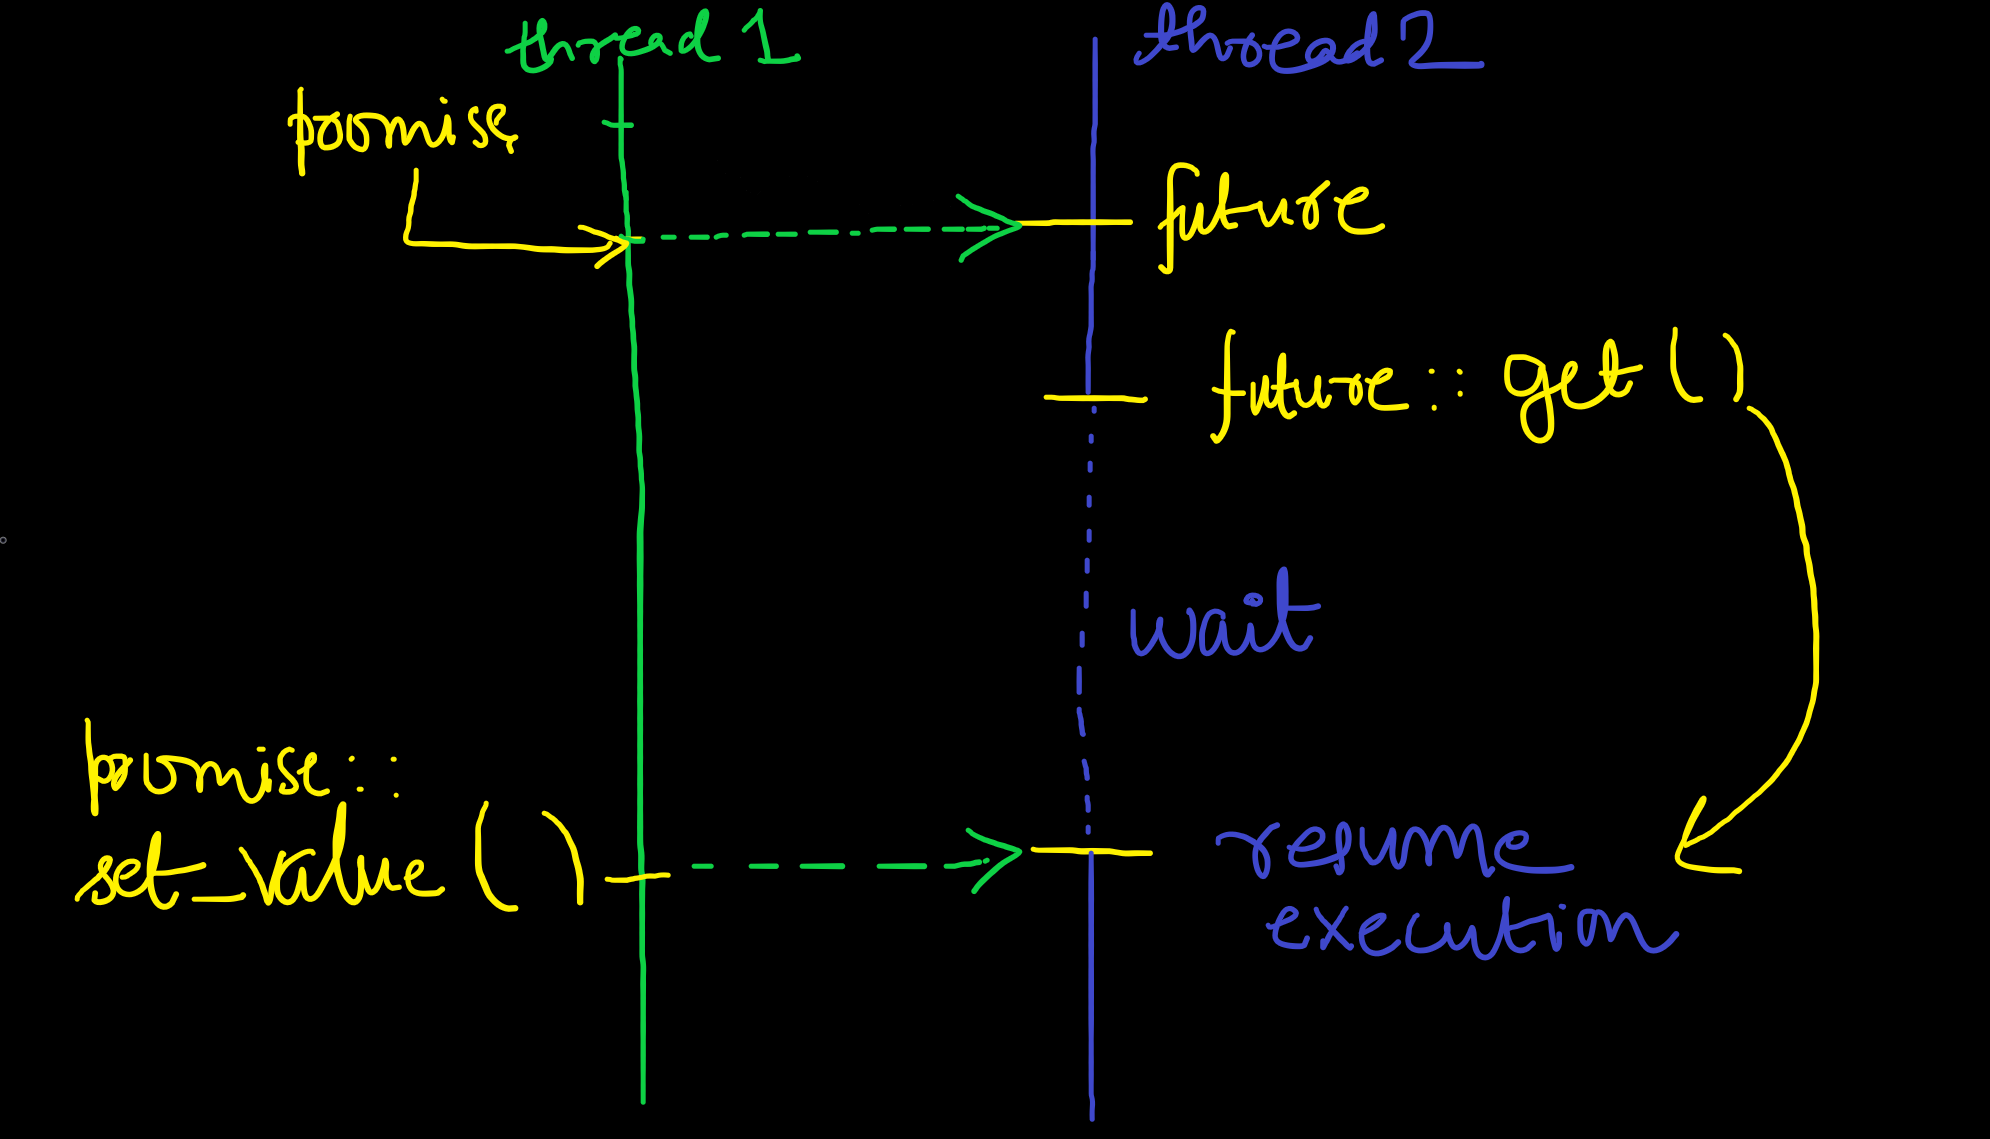 thread 1
thread 2
promise
future
future::get()
wait
promise::
set_value()
resume
execution